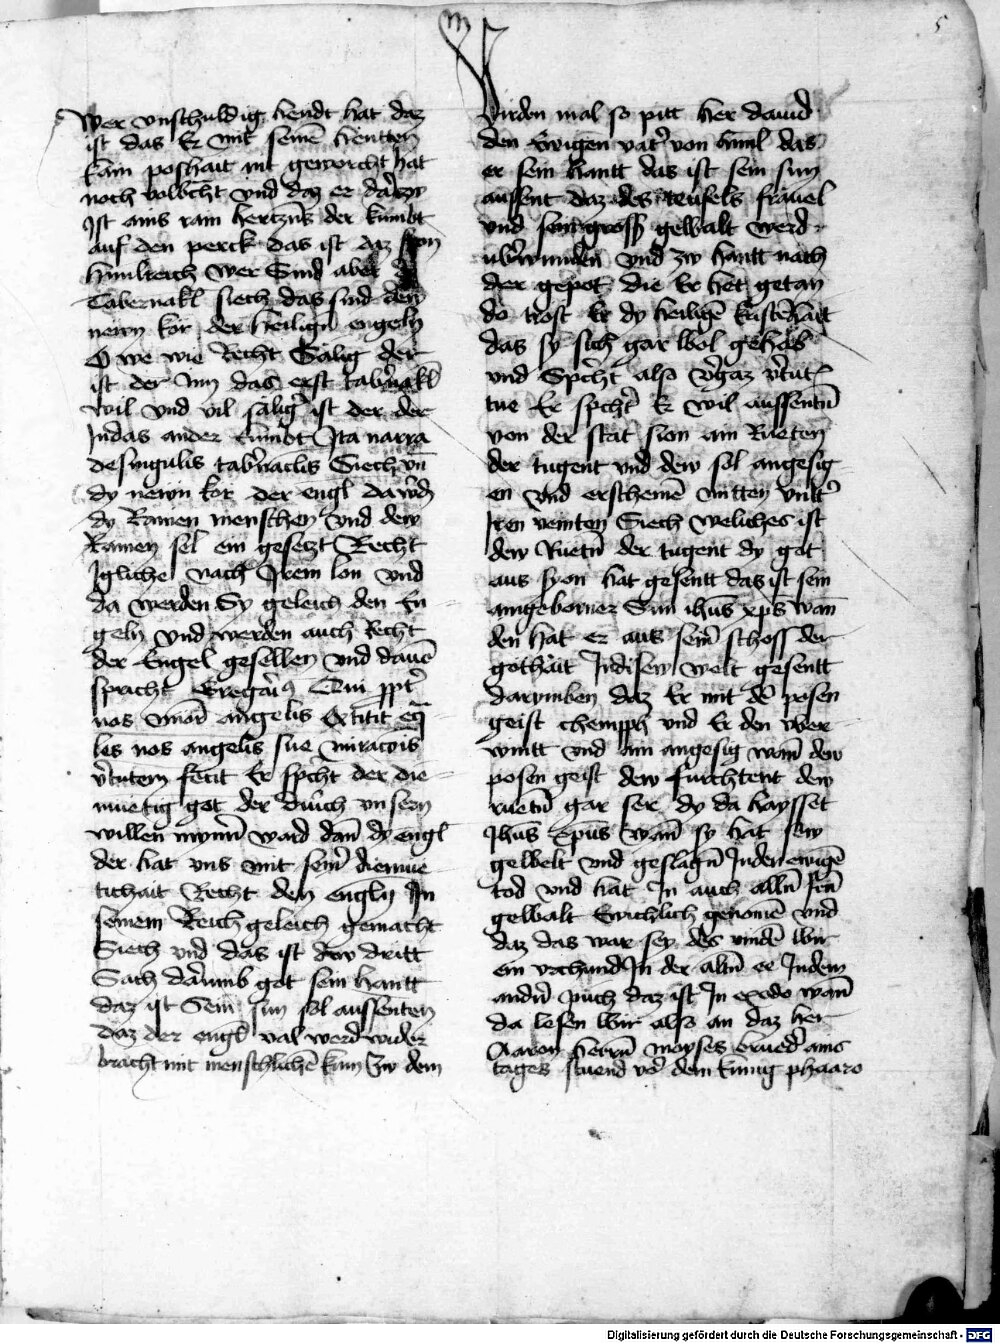 5
Wer vnschuldig hendt hat daz
ist das Er mit seinē hentten
kain poshait nit geworcht hat
noch volbrcht vnd daz er darzw
Ist ains rain hertzns der kumbt
auf den perck das ist daz
himlreich wer Sind aber
Tabernakl siech das sind dew
newn kor der heiligñ engeln
O we wie Recht Sälig der
ist der Inn das erst tab'nakl
wil vnd vil sälig' ist der der
In das ander kumbt Ita narra
de singulis tab'naclis Siech vñ
dy newn kor der engl da w'dñ
dy Rainen menschen vnd dew
Rainen sel ein gesetzt Recht
Igliche nach Irem lon vnd
da werden Sy geleich den En
geln vnd werden auch Recht
der Engel gesellen vnd dauō
spricht Gregori9 Qui ppt'
nos minor angelis extitit eq̄
les nos angelis sue
v'tutem fecit Er spcht der die
muetig got der durch vnsern
willen mynn' ward dañ dy engl
der hat vns mit sein' diemue
tichait Recht den engln In
seinem Reich geleich gemacht
Siech vnd das ist dy dritt
Sach darumb got sein hantt
daz ist Sein sun sol aussenten
daz der engl val werd wider
bracht mit menschlichē kun Zw dem
Virden mal so pitt her dauid
den Ewigen vat' von himl das
er sein hantt das ist sein sun
aussent daz des teufels fräuel
vnd sein gross gewalt werd
vb'wunden vnd zw hantt nach
der gepet die Er het getan
do trost Er dy heiligē kristēhait
das sy sich gar wol gehab
vnd Spcht also v'gaz v'tut
tue Er spcht' Er wil aussentñ
von der stat sion ain Rueten
der tugent vnd dew sol angesig
en vnd erscheinē mitten vnt'
Iren veinten Siech weliches ist
dew Ruetñ der tugent dy got
aus syon hat gesentt das ist sein
aingeborner Sun ihūs xp̄s wan̄
den hat er aus sein' schoss der
gothait In disew welt gesentt
darumben daz Er mit dē posen
geist chempph vnd Er den vber
wintt vnd im angesig wann dew
posen geist dew furchtent dew
ruetñ gar ser dy da haysset
Ihūs xpūs wann sy hat sew
gewelt vnd geslagñ In den ewigē
tod vnd hat In auch alln Irñ
gewalt Ewichlich genomē vnd
daz das war sey des vindē wir
ein vrchund In der altñ ee In dem
andñ puch daz ist In exodo wan̄
da lesen wir also an daz her
Aaron herrñ moyses brued' ains
tages stuend vō dem kunig pharao